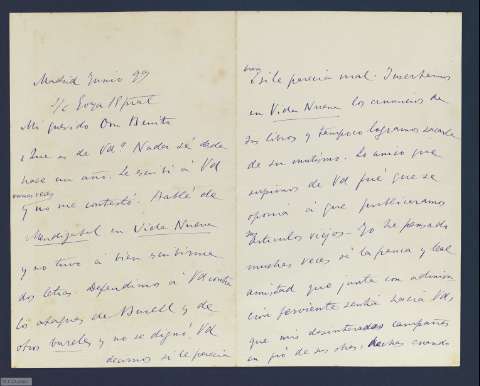 Madrid Junio 99
s/c Goya 18 pral
Mi querido Don Benito
¿Que es de Vd? Nada sé desde
hace un año. Le escribí á Vd
muchas veces
y no me contestó. Hablé de
Mendizábal en Vida Nueva
y no tuvo á bien escribirme
dos letras. Defendimos á Vd contra
los ataques de Burell y de
otros bureles y no se dignó Vd
decirnos si le parecía
bien
ó si le parecía mal. Insertamos
en Vida Nueva los anuncios de
sus libros y tampoco logramos sacarle
de su mutismo. Lo unico que
supimos de Vd fué que se
oponía á que publicáramos
sus
artículos viejos. Yo he pensado
muchas veces si la franca y leal
amistad que junta con admira-
ción ferviente sentía hacia Vd,
que mis desinteresadas campañas
en pró de sus obras, hechas cuando